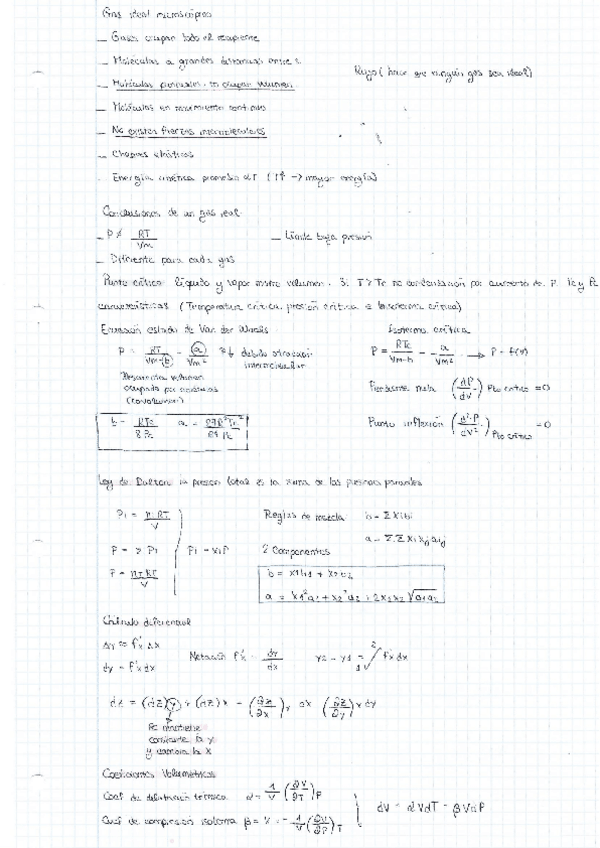 Gas ideal microscópico
— Gases ocupan todo el recipiente
— Moléculas a grandes distancias entre sí
— Moléculas puntuales, no ocupan volumen
(hace que ningún gas sea ideal)
— Moléculas en movimiento continuo
— No existen fuerzas intermoleculares
— Choques elásticos
Energía cinética promedio αT (T↑ → mayor energía)
Conclusiones de un gas real
— P ≠ RT/Vm
— Límite baja presión
— Diferente para cada gas
Punto crítico líquido y vapor mismo volumen. Si T > Tc no condensación por aumento de P. Tc y Pc
características (Temperatura crítica, presión crítica e isoterma crítica)
Ecuación estado de Van der Waals
Isoterma crítica
P = RT/(Vm-b) - a/Vm² debido atracción intermolecular
P = RTc/(Vm-b) - a/Vm² → P = f(V)
volumen
ocupado por moléculas
(covolumen)
Pendiente nula (dP/dV) Pto crítico = 0
b = RTc/8Pc a = 27R²Tc²/64Pc
Punto inflexión (d²P/dV²) Pto crítico = 0
Ley de Dalton: la presión total es la suma de las presiones parciales
Pi = niRT/V
Reglas de mezcla b = Σ xi bi
a = Σ Σ xi xj aij
P = Σ Pi
Pi = xiP
2 Componentes
P = nT RT/V
b = x1b1 + x2b2
a = x1²a1 + x2²a2 + 2x1x2 √a1a2
Cálculo diferencial
Δy ≈ f'x Δx
dy = f'x dx
Notación f'x = dy/dx
y2 - y1 = ∫₁² f'x dx
dz = (dz)y + (dz)x = (∂z/∂x)y dx (∂z/∂y)x dy
constante la y
y cambia la x
Coeficientes Volumétricos
Coef de dilatación térmica α = 1/V (∂V/∂T)P
dV = αVdT - βVdP
Coef de compresión isoterma β = K = -1/V (∂V/∂P)T